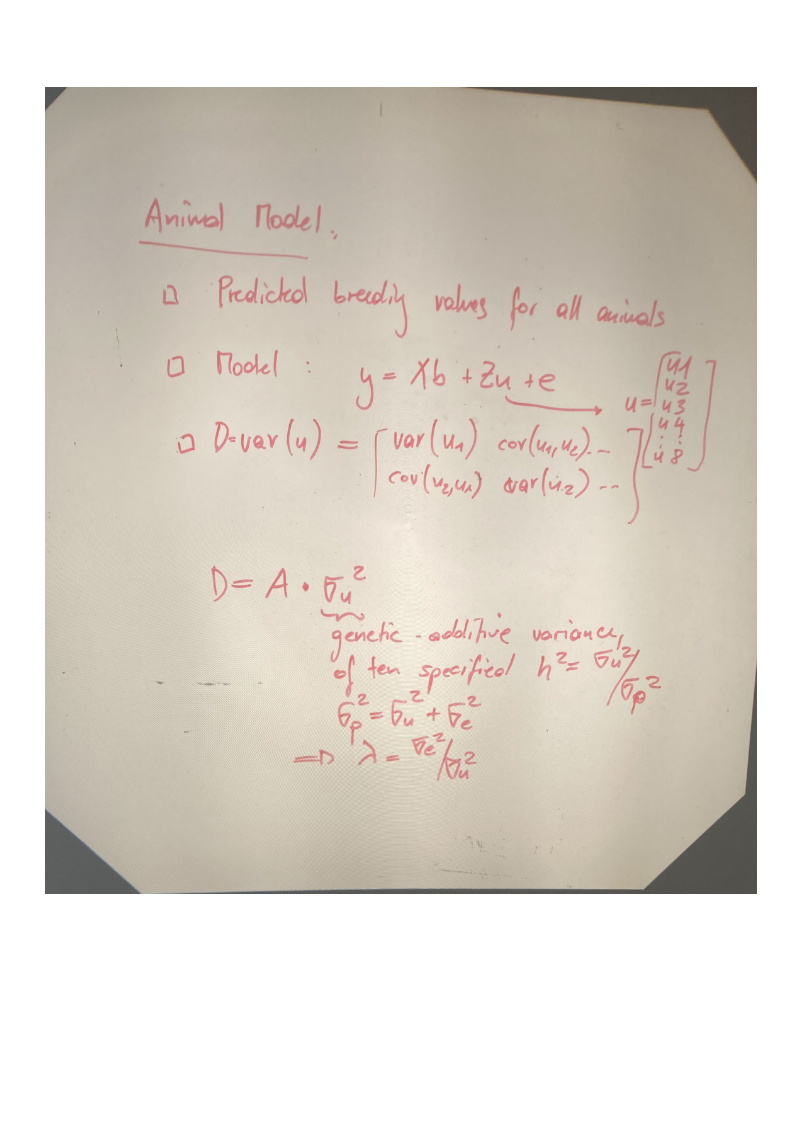 Animal Model.
□ Predicted breeding values for all animals
□ Model : y = Xb + Zu + e → u = [u1 u2 u3 u4 ⋮ u8]
□ D=var(u) = [var(u₁) cov(u₁,u₂)...
cov(u₂,u₁) var(u.2) ...]
D = A · σu²
genetic-additive variance,
often specified h² = σu²/σp²
σp² = σu² + σe²
⇒ λ = σe²/σu²